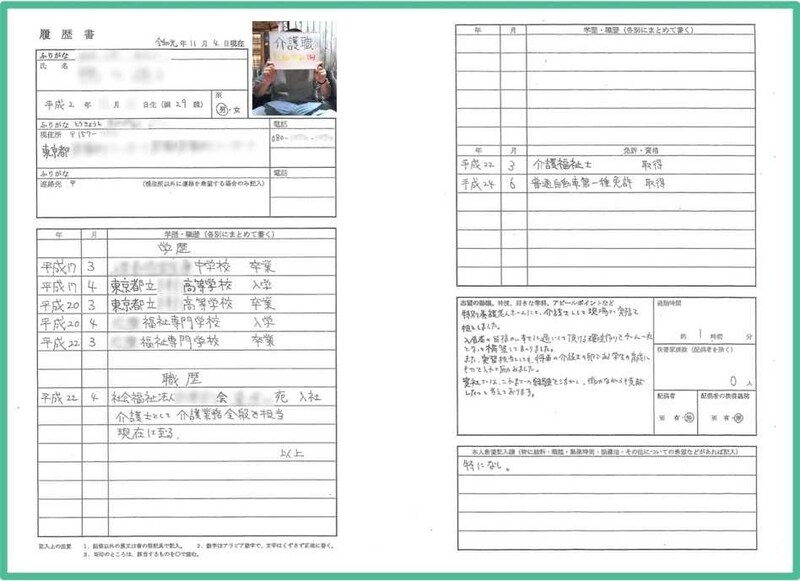 履歴書
令和元年11月4日現在
介護職
ふりがな
氏名
平成2年 月 日生(満29歳)
※
男・女
ふりがな とうきょうと
現住所 〒157-
東京都
電話
080-
ふりがな
連絡先 〒 (現住所以外に連絡を希望する場合のみ記入)
電話
年 月 学歴・職歴(各別にまとめて書く)
学歴
平成17 3 中学校 卒業
平成17 4 東京都立 高等学校 入学
平成20 3 東京都立 高等学校 卒業
平成20 4 福祉専門学校 入学
平成22 3 福祉専門学校 卒業
職歴
平成22 4 社会福祉法人 会 苑 入社
介護士として介護業務全般を担当
現在に至る。
以上
記入上の注意 1.鉛筆以外の黒又は青の筆記具で記入。 2.数字はアラビア数字で、文字はくずさず正確に書く。
3.※印のところは、該当するものを○で囲む。
年 月 学歴・職歴(各別にまとめて書く)
年 月 免許・資格
平成22 3 介護福祉士 取得
平成24 6 普通自動車第一種免許 取得
志望の動機、特技、好きな学科、アピールポイントなど
特別養護老人ホームにて、介護士として現場で実務を
担当しました。
また、実習担当としても、将来の介護士の卵である学生の育成に
したいと考えております。
通勤時間
約 1 時間 分
扶養家族数(配偶者を除く)
0人
配偶者
※ 有・無
配偶者の扶養義務
※ 有・無
本人希望記入欄(特に給料・職種・勤務時間・勤務地・その他についての希望などがあれば記入)
特になし。